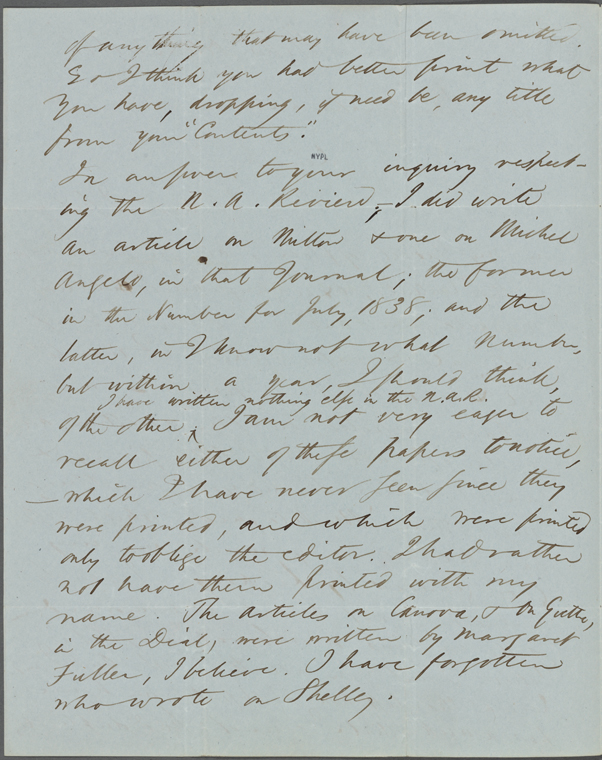 of anything that may have been omitted.
So I think you had better print what
you have, dropping, if need be, any title
from your "Contents".
NYPL
In answer to your inquiry respect-
ing the N. A. Review,—I did write
an article on Milton & one on Michel
Angelo, in that Journal; the former
in the Number for July, 1838; and the
latter, in I know not what number,
but within a year, I should think,
I have written nothing else in the N.A.R.
of the other. I am not very eager to
recall either of these papers to notice,
— which I have never seen since they
were printed, and which were printed
only to oblige the editor. I had rather
not have them printed with my
name. The articles on Canova, & on Goethe,
in the Dial, were written by Margaret
Fuller, I believe. I have forgotten
who wrote on Shelley.